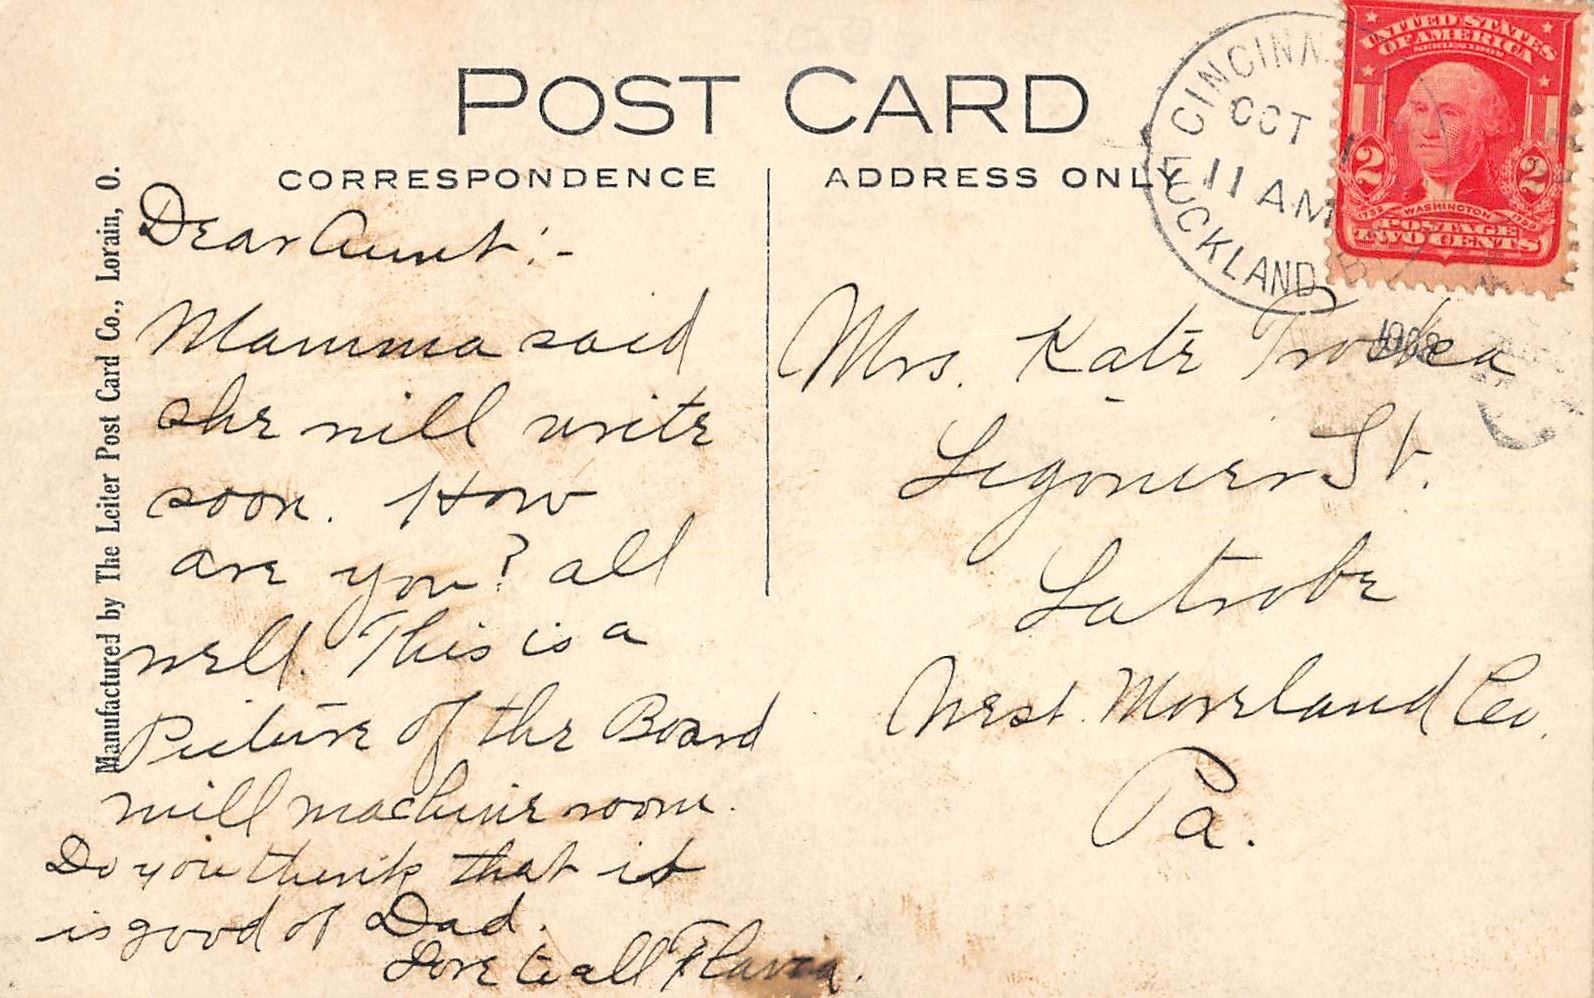 POST CARD
CORRESPONDENCE
ADDRESS ONLY
Manufactured by The Leiter Post Card Co., Lorain, O.
CINCINN
OCT 1
11 AM
LOCKLAND
1908
UNITED STATES
OF AMERICA
SERIES 1902
2 2
1732 WASHINGTON 1799
POSTAGE
TWO CENTS
Dear Aunt :-
Mamma said
she will write
soon. How
are you? all
well. This is a
Picture of the Board
mill machine room.
Do you think that it
is good of Dad.
Love to all Flavia.
Mrs. Kate
Ligonier St.
Latrobe
West Moreland Co.
Pa.